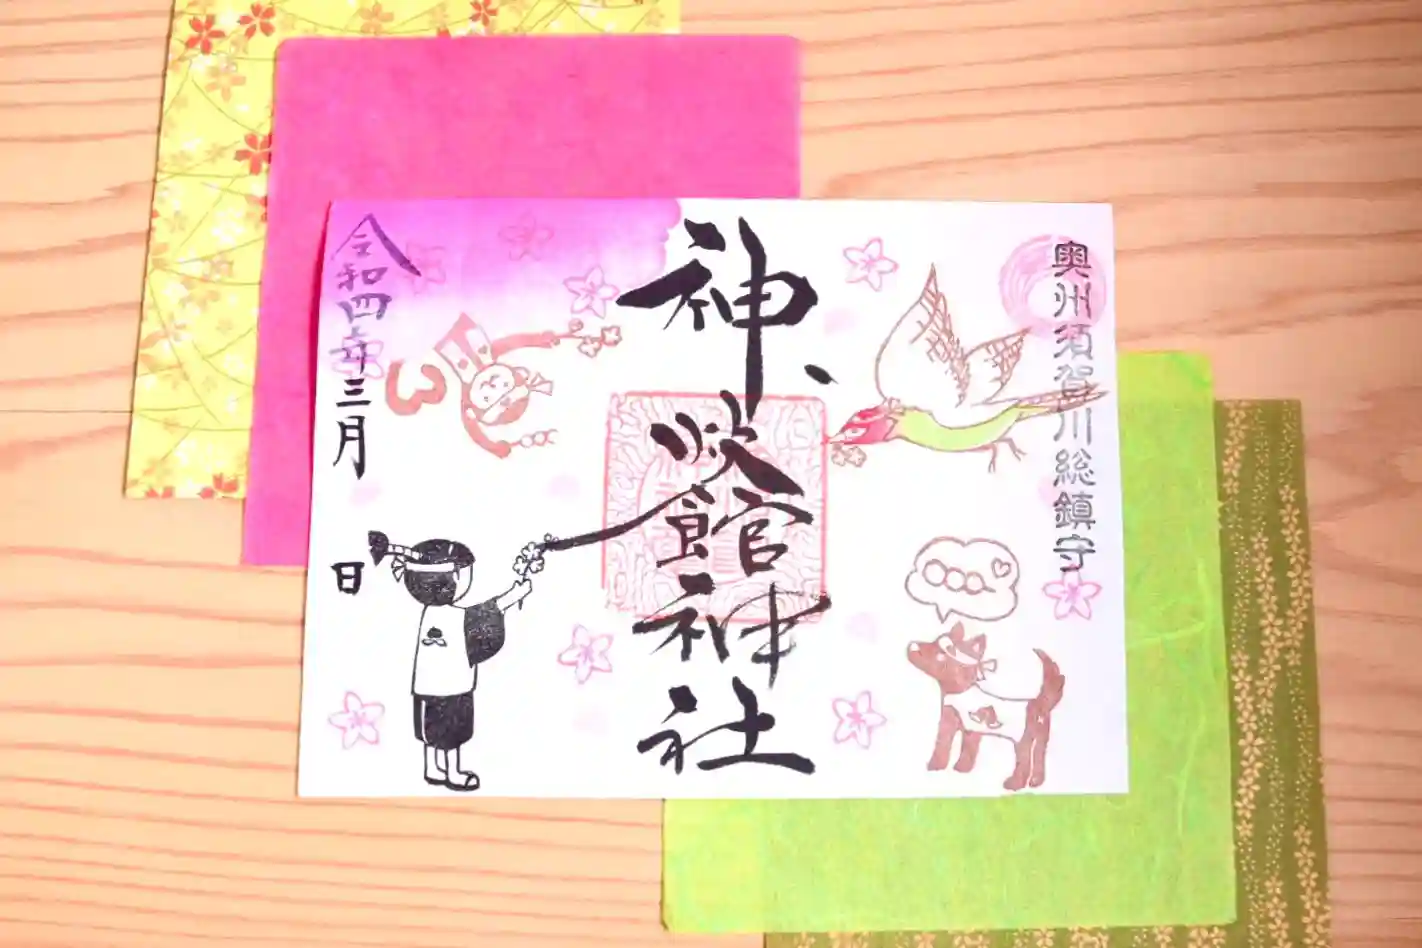 奥州須賀川総鎮守
神炊館神社
令和四年三月 日
3